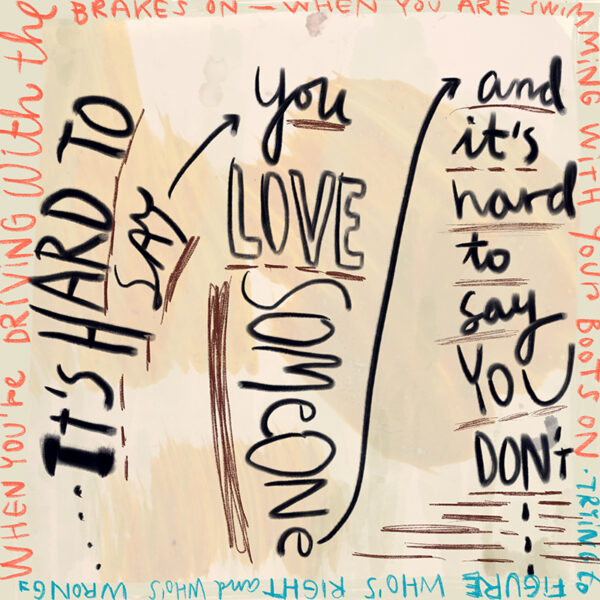 WHEN YOU'RE DRIVING With the
BRAKES ON – WHEN YOU ARE SWIM
MING WITH YOUR BOOTS ON · TRYING to
FIGURE WHO'S RIGHT and WHO'S WRONG?
...It's HARD TO
SAY
you
LOVE
SOMeONe
and
it's
hard
to
say
YOU
DON'T